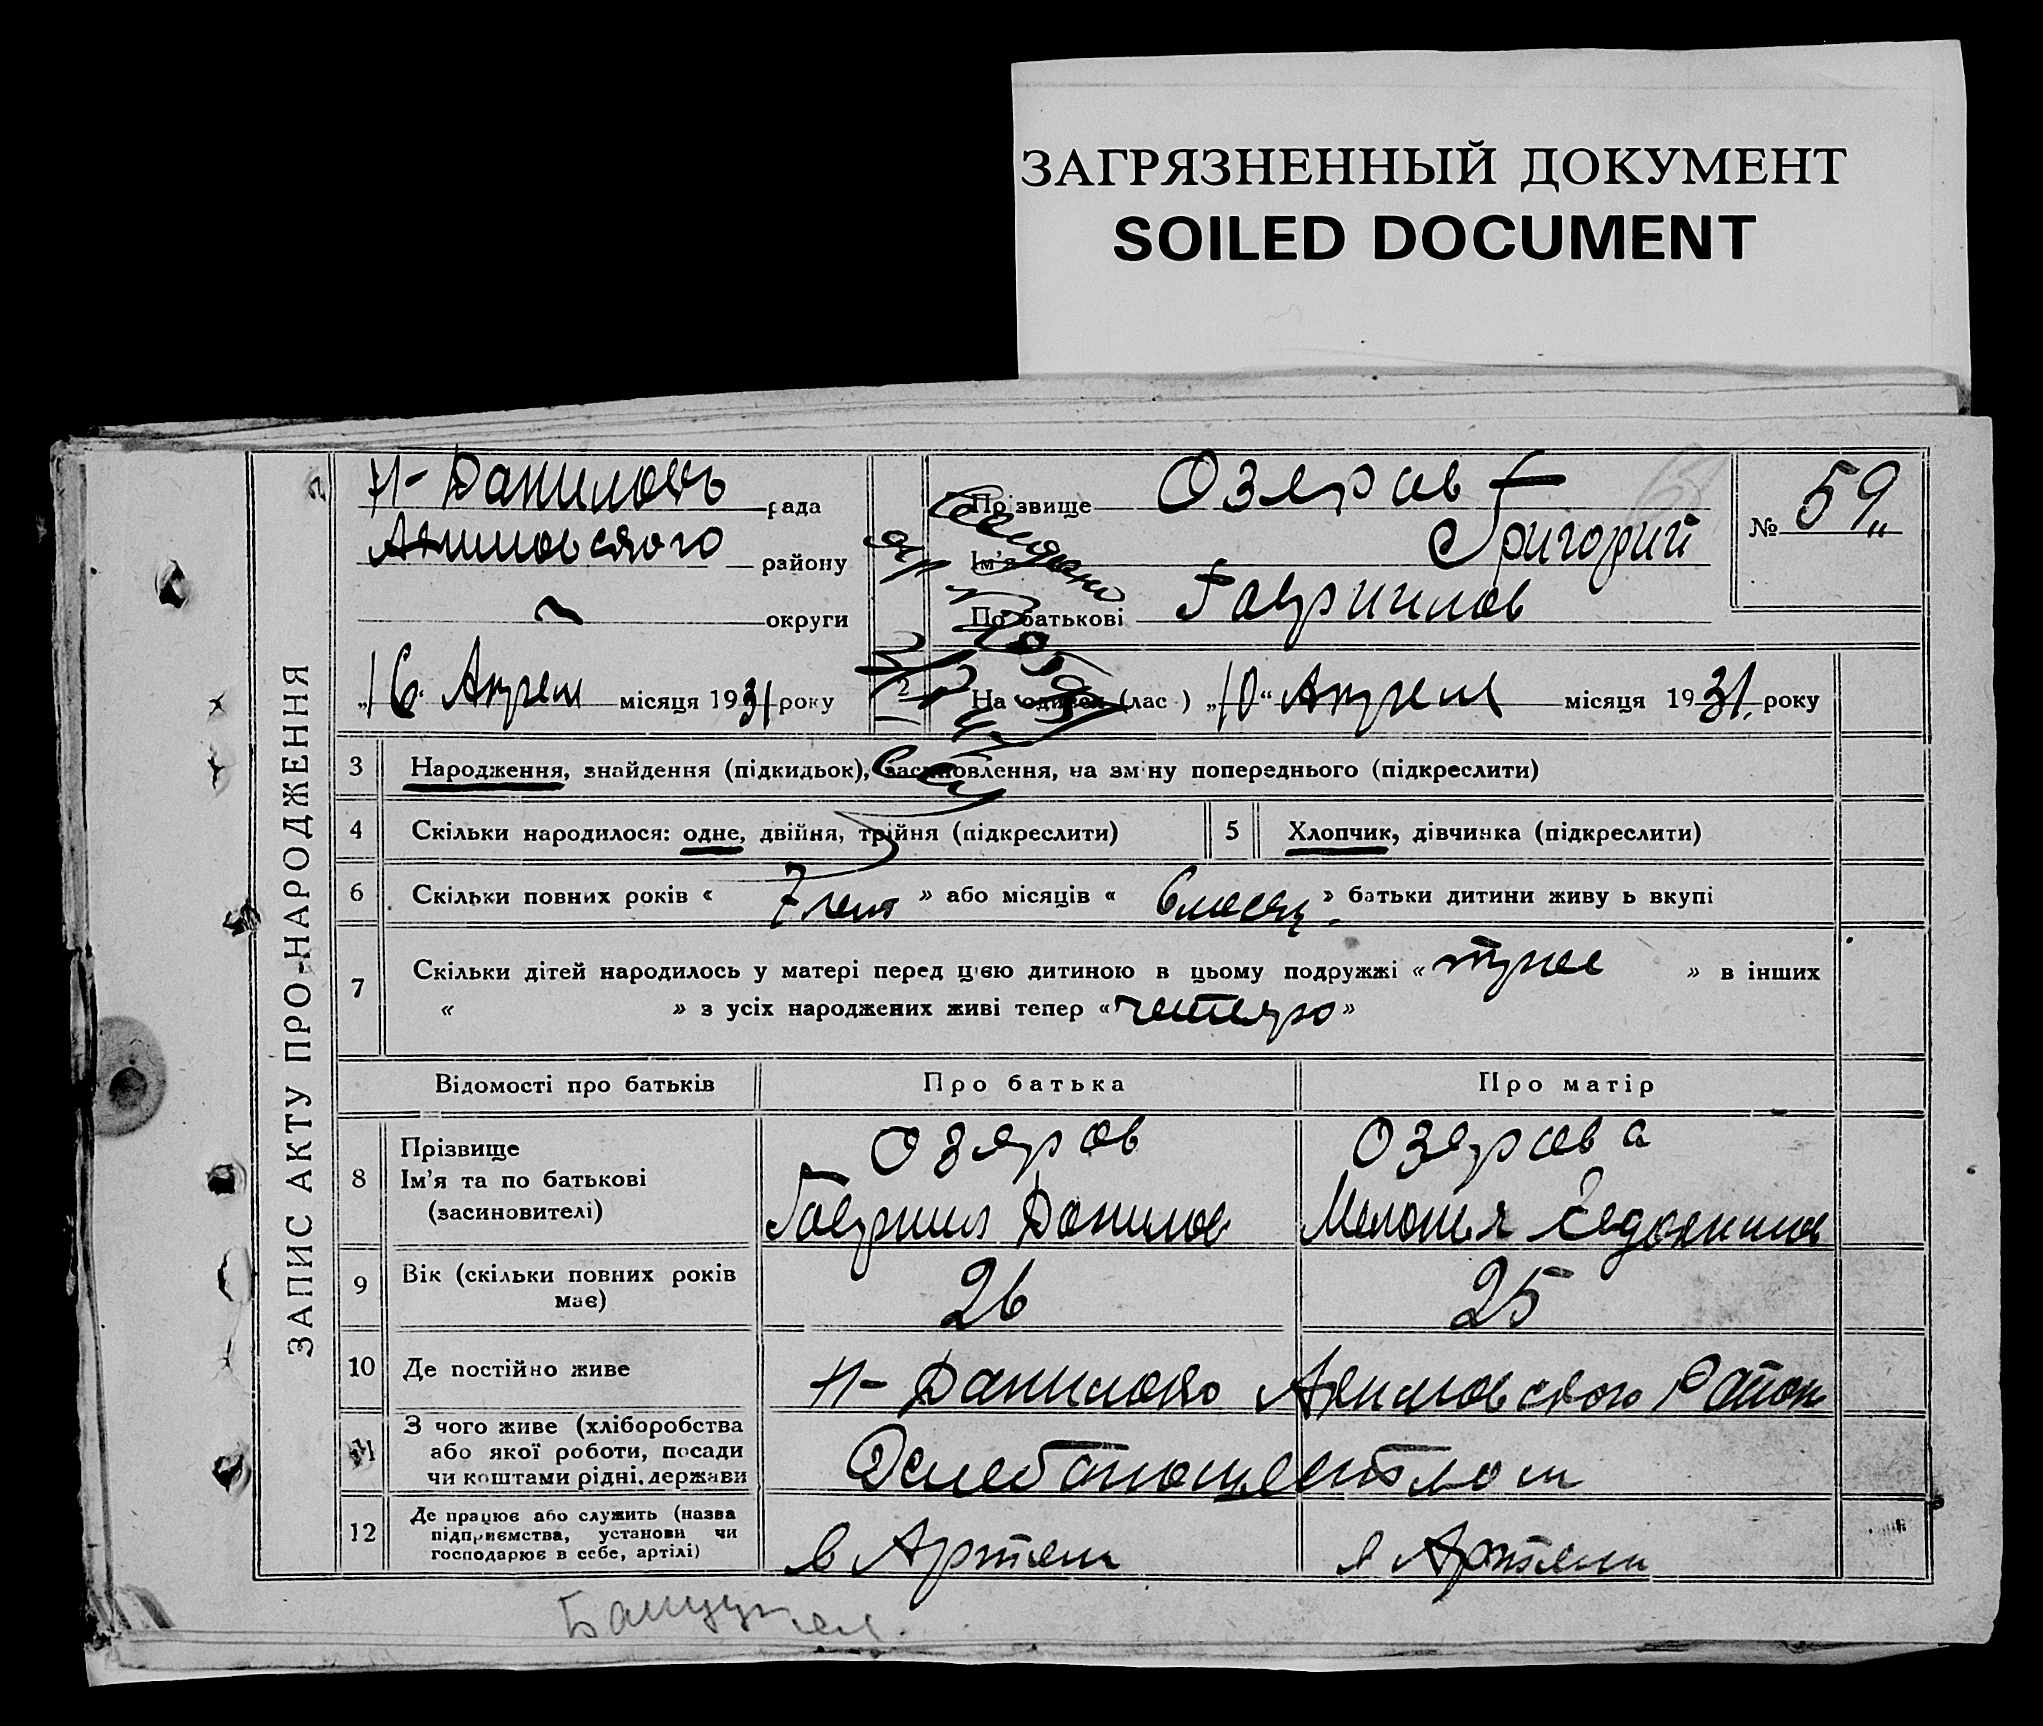 ЗАГРЯЗНЕННЫЙ ДОКУМЕНТ
SOILED DOCUMENT
ЗАПИС АКТУ ПРО НАРОДЖЕННЯ
Н-Даниловъ рада
Акимовского району
округи
„16" Апрел місяця 1931 року
Прізвище Озеров
Ім'я Григорий
По батькові Гавриилов
№ 59
2 На (лас ) „10" Апрел місяця 1931 року
3 Народження, знайдення (підкидьок), засиновлення, на зміну попереднього (підкреслити)
4 Скільки народилося: одне, двійня, трійня (підкреслити)
5 Хлопчик, дівчинка (підкреслити)
6 Скільки повних років « 7 лет » або місяців « 6 месяц » батьки дитини живу ь вкупі
7 Скільки дітей народилось у матері перед цією дитиною в цьому подружжі « трое » в інших
« » з усіх народжених живі тепер « четверо »
Відомості про батьків
Про батька
Про матір
8 Прізвище
Ім'я та по батькові
(засиновителі)
Озеров
Гавриил Данилов
Озерова
Мелания
9 Вік (скільки повних років
має)
26
25
10 Де постійно живе
Н-Даниловка Акимовского Район
11 З чого живе (хліборобства
або якої роботи, посади
чи коштами рідні, держави
Хлебопашеством
12 Де працює або служить (назва
підприємства, установи чи
господарює в себе, артілі)
в Артели
в Артели